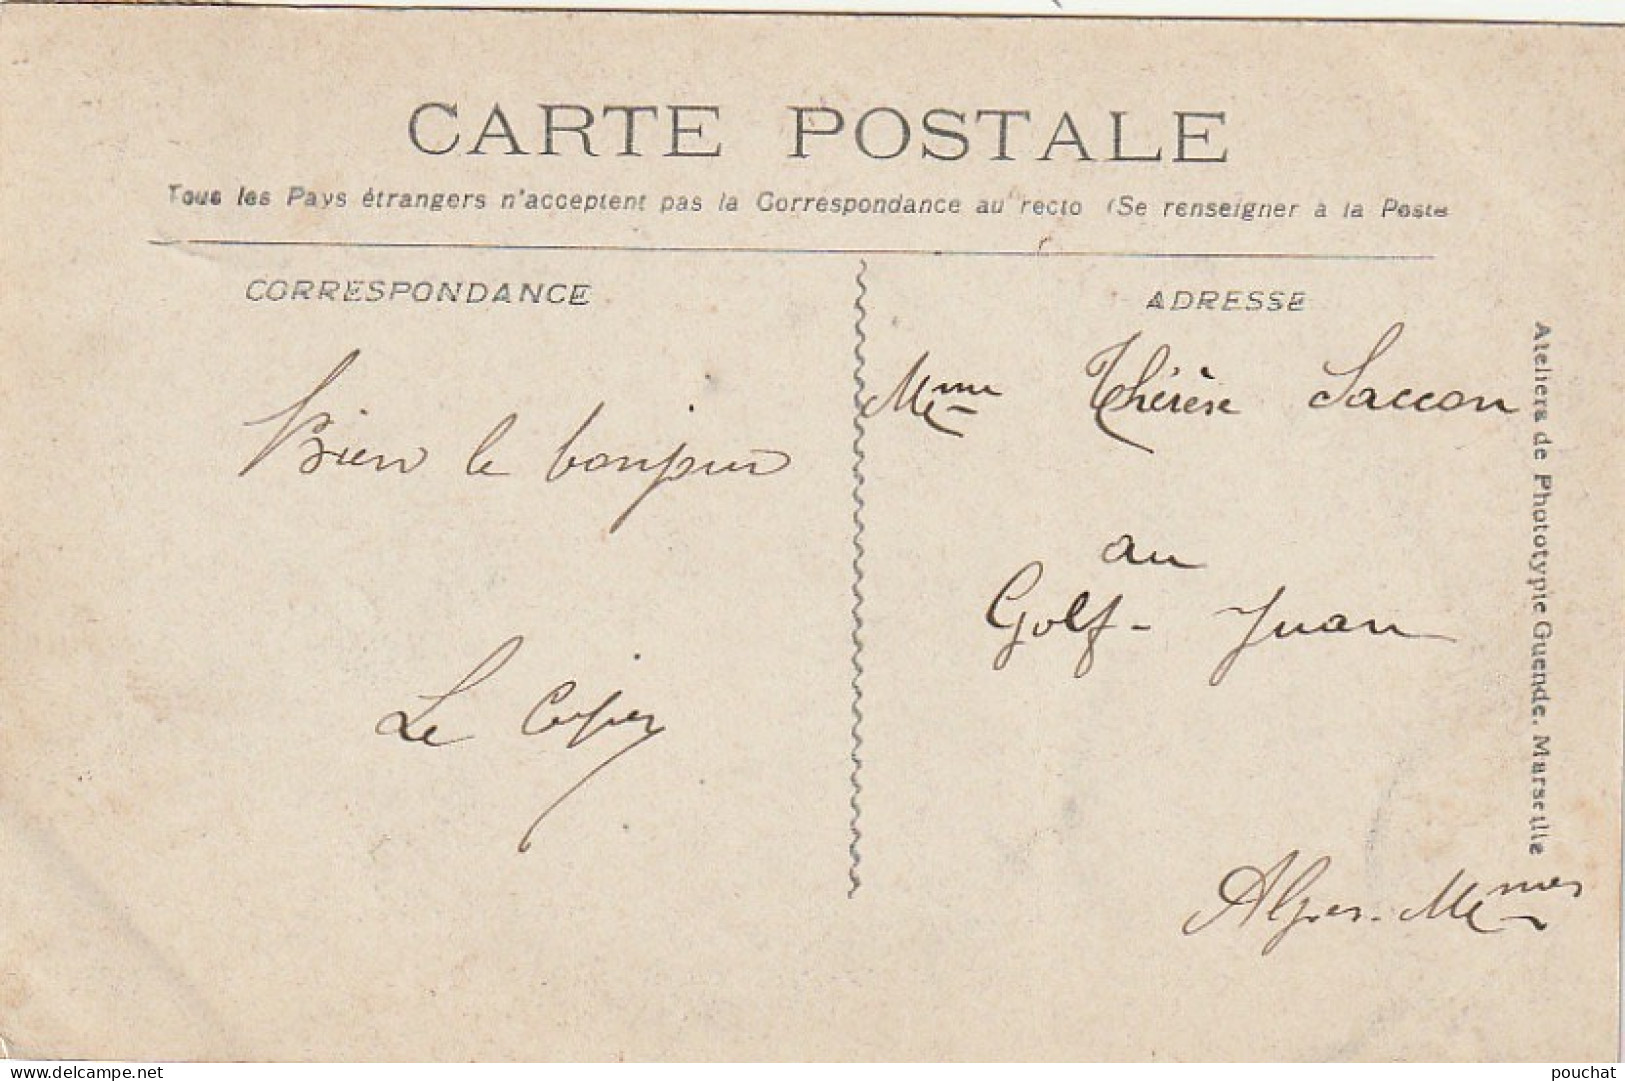 CARTE POSTALE
Tous les Pays étrangers n'acceptent pas la Correspondance au recto (Se renseigner à la Poste
CORRESPONDANCE
Bien le bonjour
Le
ADRESSE
Mme Thérèse Saccon
au
Golf-Juan
Alpes-Mmes
Ateliers de Phototypie Guende. Marseille
www.delcampe.net
pouchat